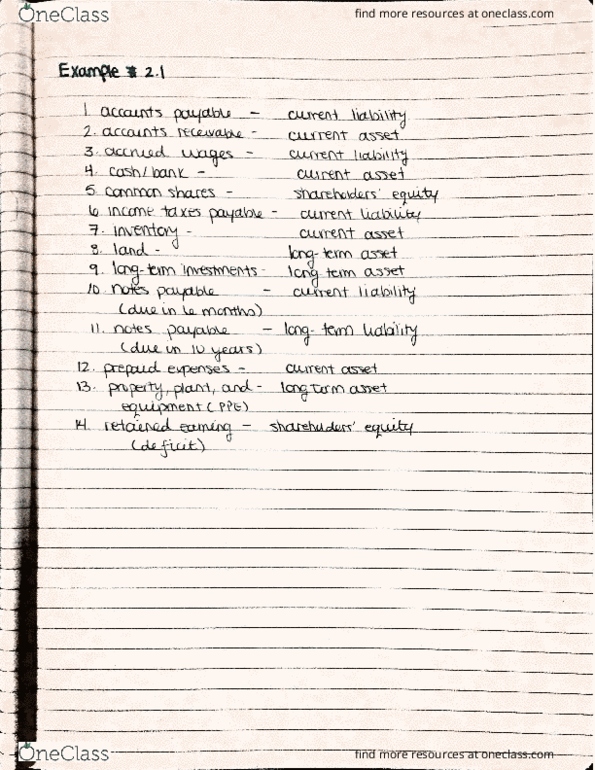 OneClass find more resources at oneclass.com
Example # 2.1
1. accounts payable - current liability
2. accounts receivable - current asset
3. accrued wages - current liability
4. cash/bank - current asset
5. common shares - shareholders' equity
6. income taxes payable - current liability
7. inventory - current asset
8. land - long-term asset
9. long-term investments - long term asset
10. notes payable - current liability
(due in 6 months)
11. notes payable - long-term liability
(due in 10 years)
12. prepaid expenses - current asset
13. property, plant, and - long term asset
equipment (PPE)
14. retained earning - shareholders' equity
(deficit)
OneClass find more resources at oneclass.com